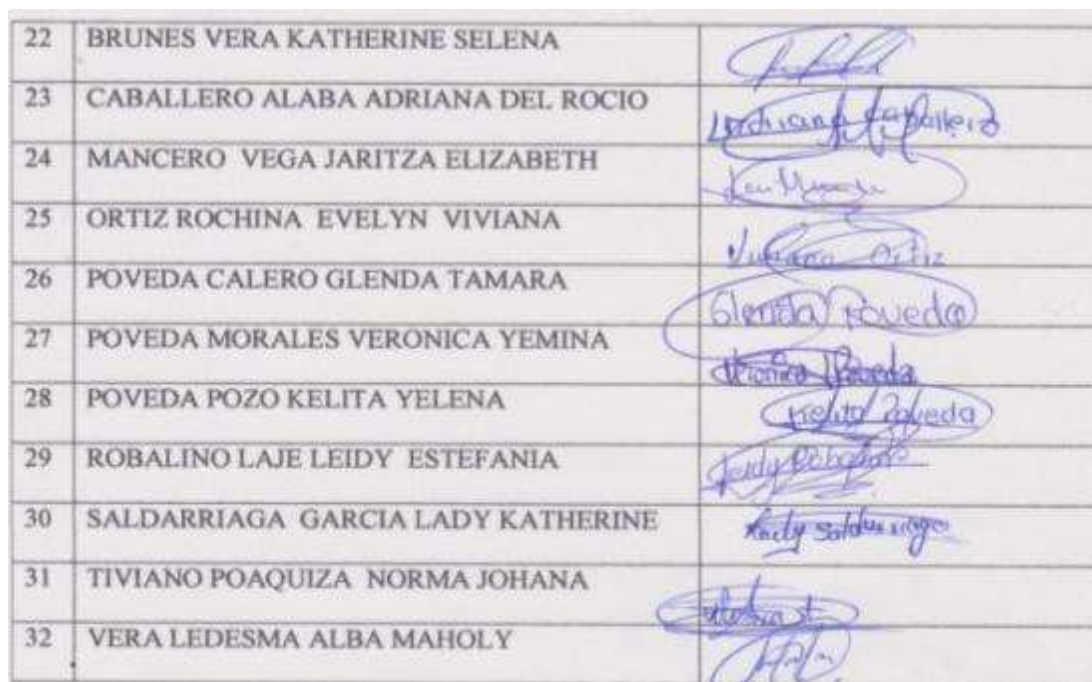 22 BRUNES VERA KATHERINE SELENA
23 CABALLERO ALABA ADRIANA DEL ROCIO Adriana Caballero
24 MANCERO VEGA JARITZA ELIZABETH
25 ORTIZ ROCHINA EVELYN VIVIANA Viviana Ortiz
26 POVEDA CALERO GLENDA TAMARA Glenda Poveda
27 POVEDA MORALES VERONICA YEMINA Veronica Poveda
28 POVEDA POZO KELITA YELENA Kelita Poveda
29 ROBALINO LAJE LEIDY ESTEFANIA Leidy Robalino
30 SALDARRIAGA GARCIA LADY KATHERINE Lady Saldarriaga
31 TIVIANO POAQUIZA NORMA JOHANA
32 VERA LEDESMA ALBA MAHOLY